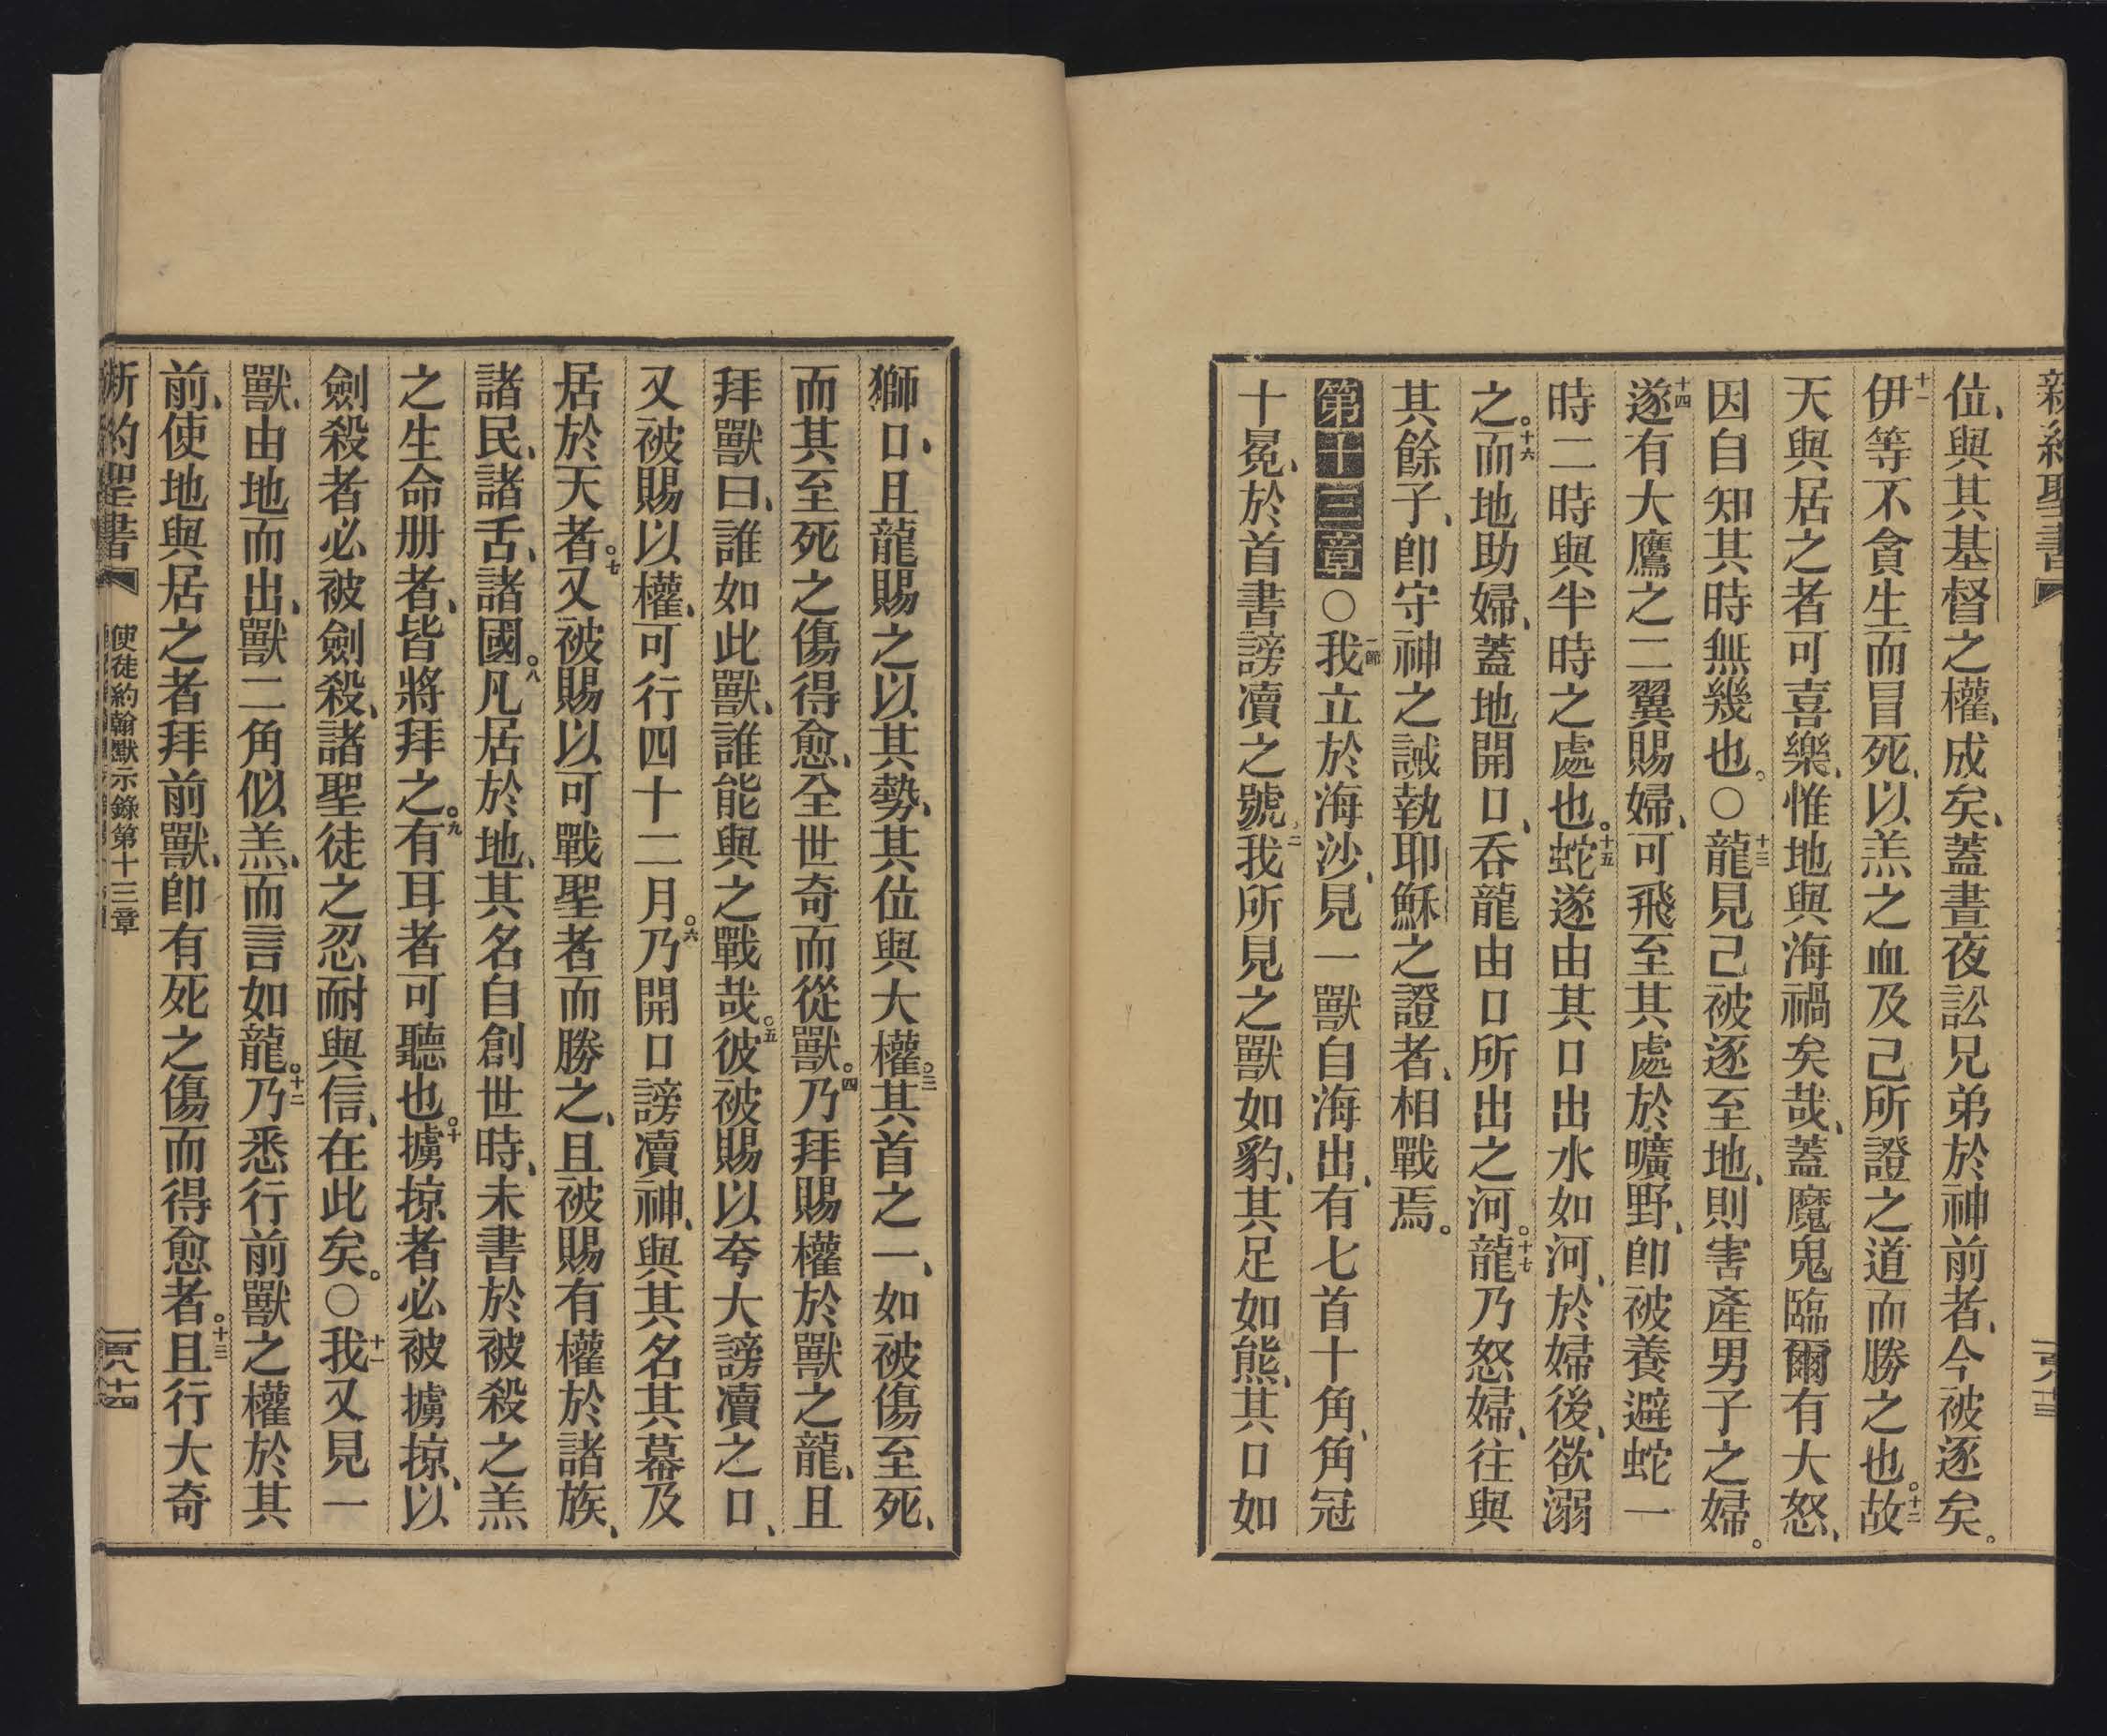 新約聖書
位、與其基督之權、成矣、蓋晝夜訟兄弟於神前者、今被逐矣。
十一伊等不貪生而冒死、以羔之血及己所證之道而勝之也。十二故
天與居之者可喜樂、惟地與海禍矣哉、蓋魔鬼臨爾有大怒、
因自知其時無幾也。○十三龍見己被逐至地、則害產男子之婦。
十四遂有大鷹之二翼賜婦、可飛至其處於曠野、卽被養避蛇一
時二時與半時之處也。十五蛇遂由其口出水如河、於婦後、欲溺
之。十六而地助婦、蓋地開口、吞龍由口所出之河。十七龍乃怒婦、往與
其餘子、卽守神之誡執耶穌之證者、相戰焉。
第十三章○一節我立於海沙、見一獸自海出、有七首十角、角冠
十冕、於首書謗瀆之號。二我所見之獸如豹、其足如熊、其口如
獅口、且龍賜之以其勢、其位與大權。三其首之一、如被傷至死、
而其至死之傷得愈、全世奇而從獸。四乃拜賜權於獸之龍、且
拜獸曰、誰如此獸、誰能與之戰哉。五彼被賜以夸大謗瀆之口、
又被賜以權、可行四十二月。六乃開口謗瀆神、與其名其幕及
居於天者。七又被賜以可戰聖者而勝之、且被賜有權於諸族、
諸民、諸舌、諸國。八凡居於地、其名自創世時、未書於被殺之羔
之生命册者、皆將拜之。九有耳者可聽也。十擄掠者必被擄掠、以
劍殺者必被劍殺、諸聖徒之忍耐與信、在此矣。○十一我又見一
獸、由地而出、獸二角似羔、而言如龍。十二乃悉行前獸之權於其
前、使地與居之者拜前獸、卽有死之傷而得愈者。十三且行大奇
新約聖書
使徒約翰默示錄第十三章
一百八十四